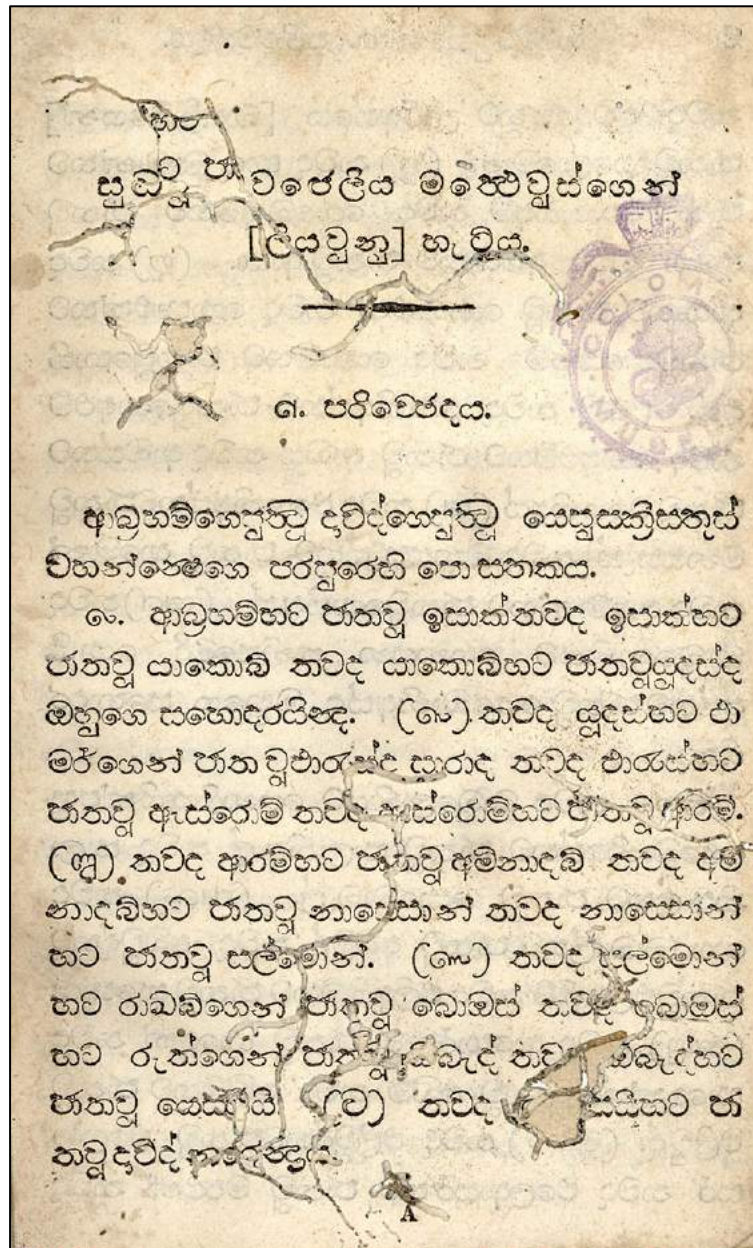 සුඬවූ වජෙලිය මත්‍ථෙවුස්ගෙන්
[ලියවුනු] හැටිය.
෧. පරිච්ඡෙදය.
ආබ්‍රහම්ගෙපුත්‍රවූ දාවිද්ගෙපුත්‍රවූ යෙසුස්ක්‍රිසතුස්
වහන්සෙගෙ පරපුරෙහි පොසතකය.
෨. ආබ්‍රහම්හට ජාතවූ ඉසාක්තවද ඉසාක්හට
ජාතවූ යාකොබ් තවද යාකොබ්හට ජාතවූයූදස්ද
ඔහුගෙ සහොදරයින්ද. තවද යූදස්හට ථා
මර්ගෙන් ජාතවූඵාරැස්ද සාරාද තවද ඵාරැස්හට
ජාතවූ ඇස්රොම් තවද ඇස්රොම්හට ජාතවූ ආරම්.
තවද ආරම්හට ජාතවූ අම්නාදබ් තවද අම්
නාදබ්හට ජාතවූ නාස්සොන් තවද නාස්සොන්
හට ජාතවූ සල්මොන්. තවද සල්මොන්
හට රාඛබ්ගෙන් ජාතවූ බොඔස් තවද බොඔස්
හට රුත්ගෙන් ජාතවූ ඔබැද් තවද ඔබැද්හට
ජාතවූ තවද ජා
තවූදාවිද්
A